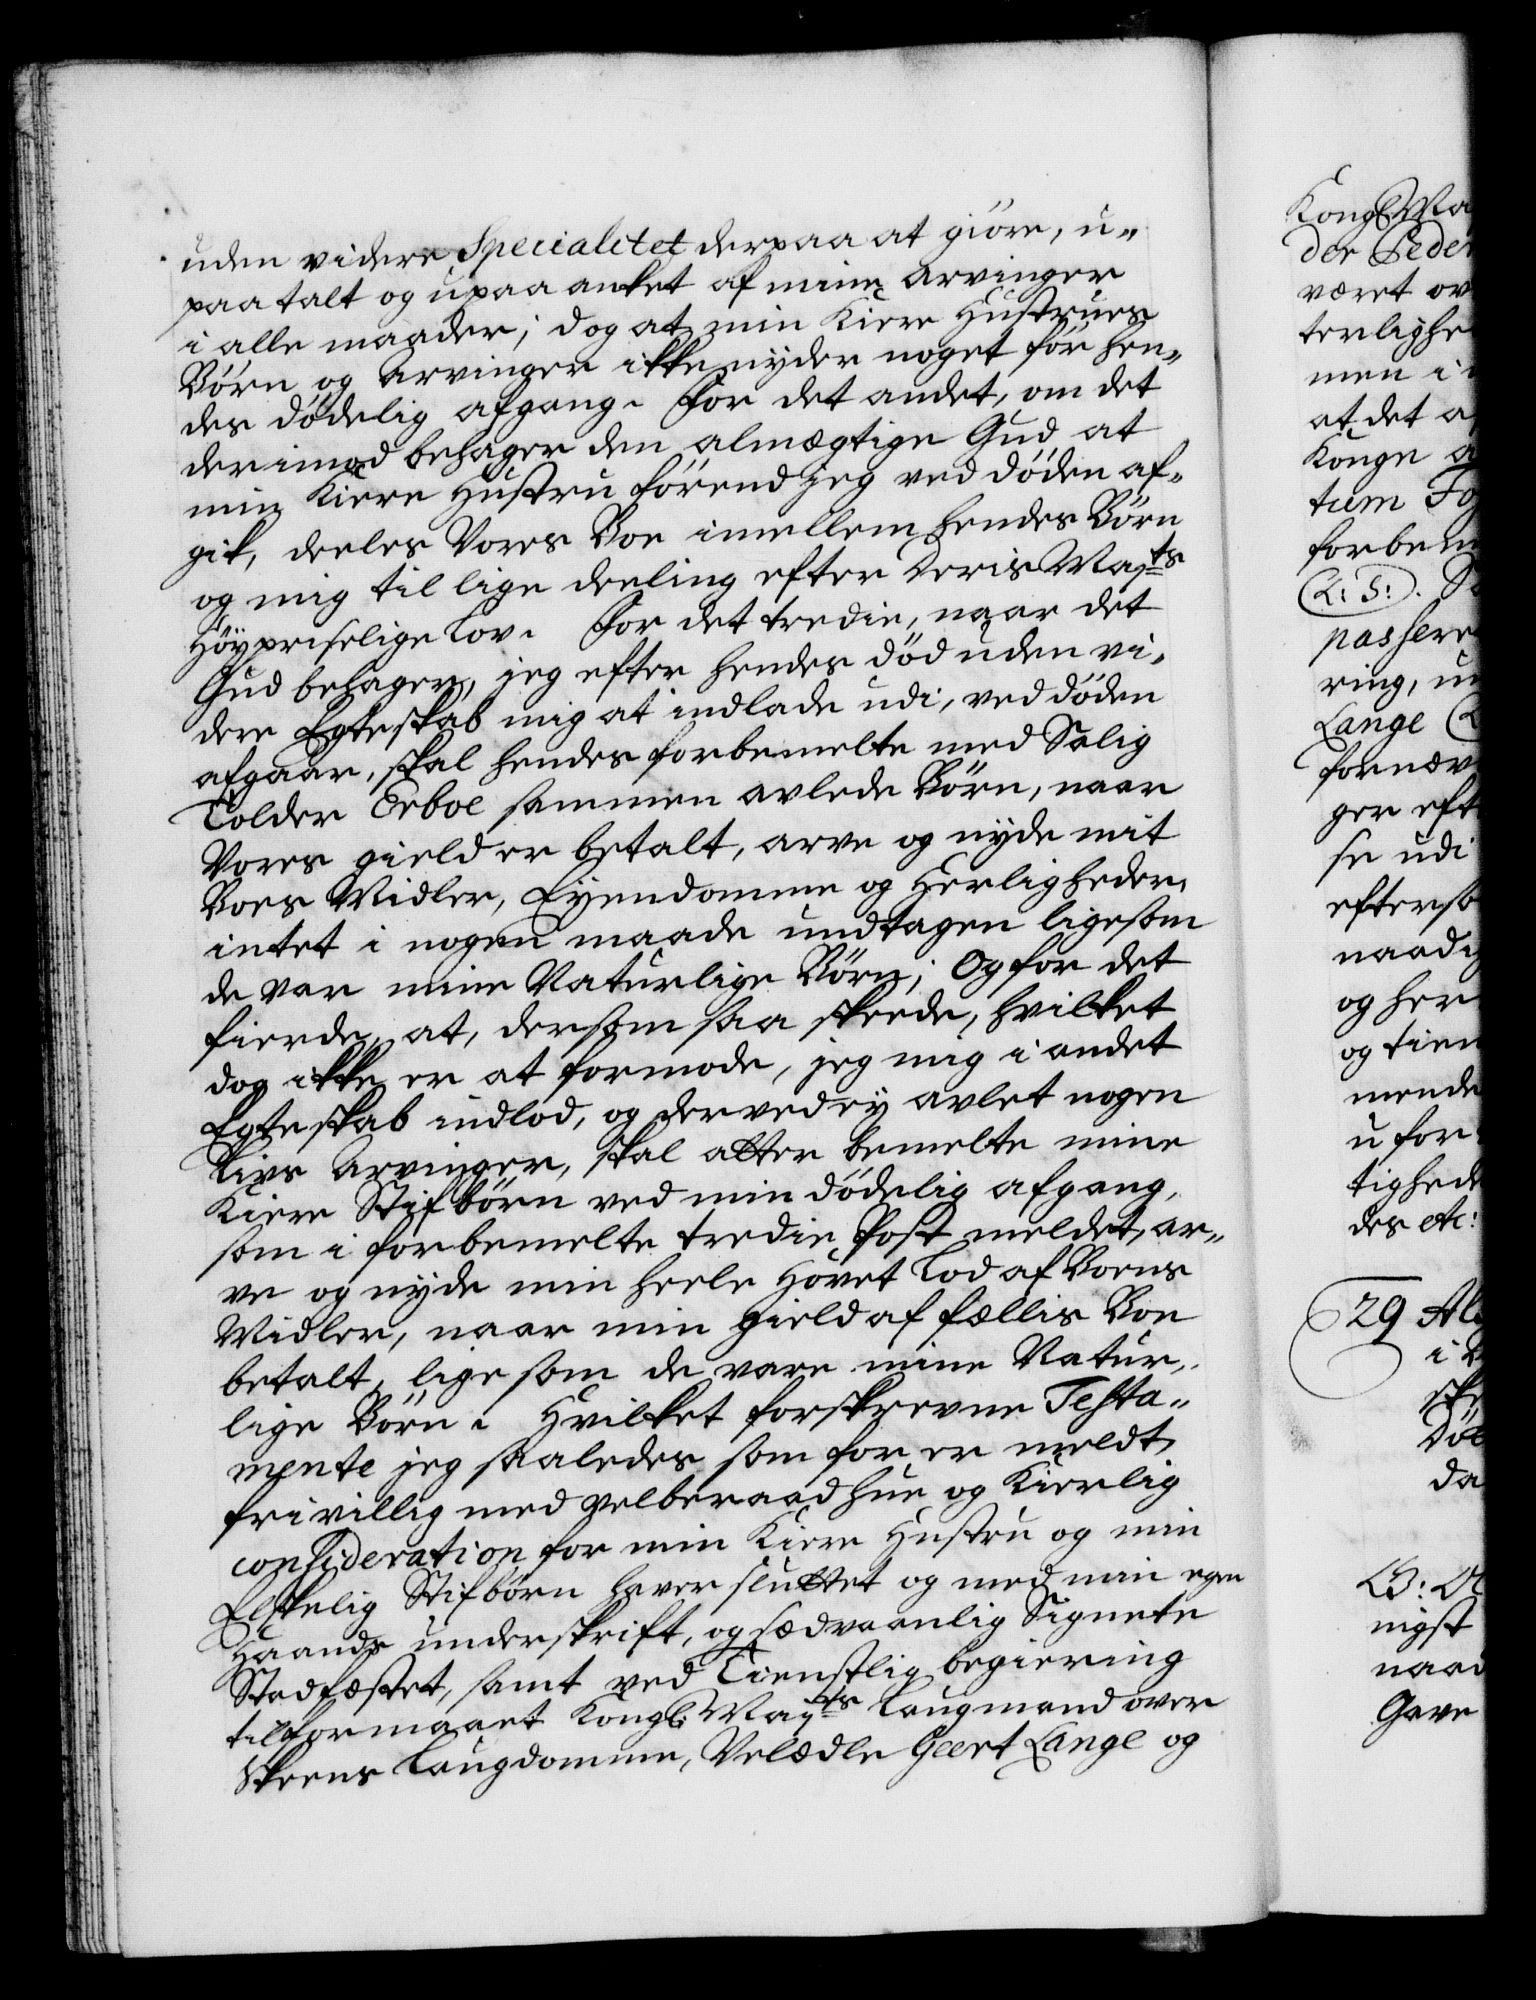 uden videre Specialitet derpaa at giöre, u-
paatalt og upaaanket af mine Arvinger
i alle maader; dog at min Kiere Hustrues
Börn og Arvinger ikke nyder noget för hen-
des dödelig afgang. For det andet, om det
derimod behager den almægtige Gud at
min Kiere Hustru förend jeg ved döden af-
gik, deeles Vores Boe imellem hendes Börn
og mig til lige deeling efter Deris Mayts
Höypriselige Lov. For det tredie, naar det
Gud behager, jeg efter hendes död uden vi-
dere Egteskab mig at indlade udi, ved döden
afgaar, skal hendes forbemelte med Salig
Tolder Erboe sammen avlede Börn, naar
Vores gield er betalt, arve og nyde mit
Boes Midler, Eyendomme og Herligheder,
intet i nogen maade undtagen ligesom
de var mine Naturlige Börn; Og for det
fierde, at, dersom saa skeede, hvilket
dog ikke er at formode, jeg mig i andet
Egteskab indlod, og derved ey avlet nogen
Livs Arvinger, skal atter bemelte mine
Kiere Stifbörn ved min dödelig afgang,
som i forbemelte tredie Post meldet, ar-
ve og nyde min heele Hovet Lod af Boens
Midler, naar min gield af fællis Boe
betalt, ligesom de vare mine Natur-
lige Börn. Hvilket forskrevne Testa-
mente jeg saaledes som for er meldt,
frivillig med velberaad hue og Kierlig
consideration for min Kiere Hustru og min
Elskelig Stifbörn haver sluttet og med min egen
Haands underskrift, og sædvaanlig Signete
Stadfæstet, samt ved Tienstlig begiering
tilformaaet Kongl Mayts Laugmand over
Skeens Laugdomme, Velædle Geert Lange og
Kongl Ma
der Peder
været ov
terlighe
men i
at det a
Konge
tum
forbem
(L: S:).
passere
ring, u
Lange
fornæv
ger eft
se udi
efterso
naadig
og her
og tien
mende
u for
tighed
des etc:
29
i
ske
da
nigst
naad
Gave